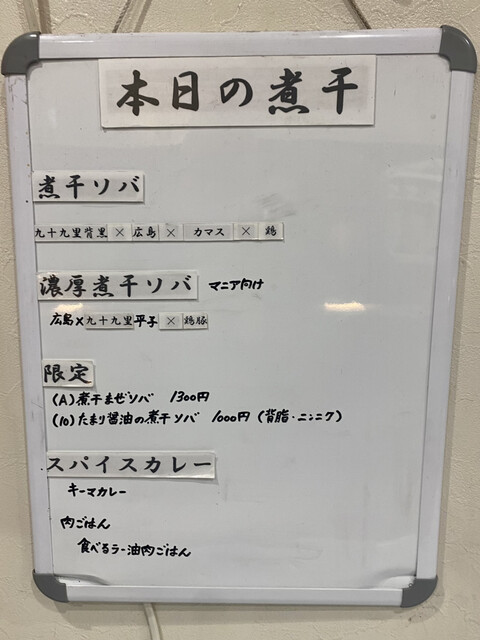 本日の煮干
煮干ソバ
九十九里背黒×広島×カマス×鶏
濃厚煮干ソバ マニア向け
広島×九十九里平子×鶏豚
限定
(A)煮干まぜソバ 1300円
(10)たまり醤油の煮干ソバ 1000円(背脂・ニンニク)
スパイスカレー
キーマカレー
肉ごはん
食べるラー油肉ごはん